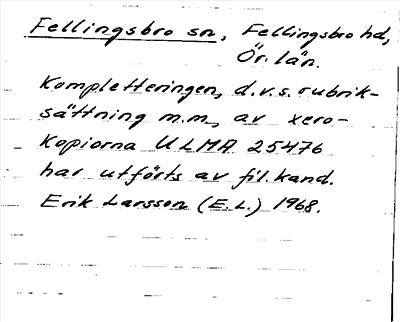 Fellingsbro sn, Fellingsbro hd,
Ör. län.
Kompletteringen, d.v.s. rubrik-
sättning m.m., av xero-
kopiorna ULMA 25476
har utförts av fil. kand.
Erik Larsson (E.L.) 1968.